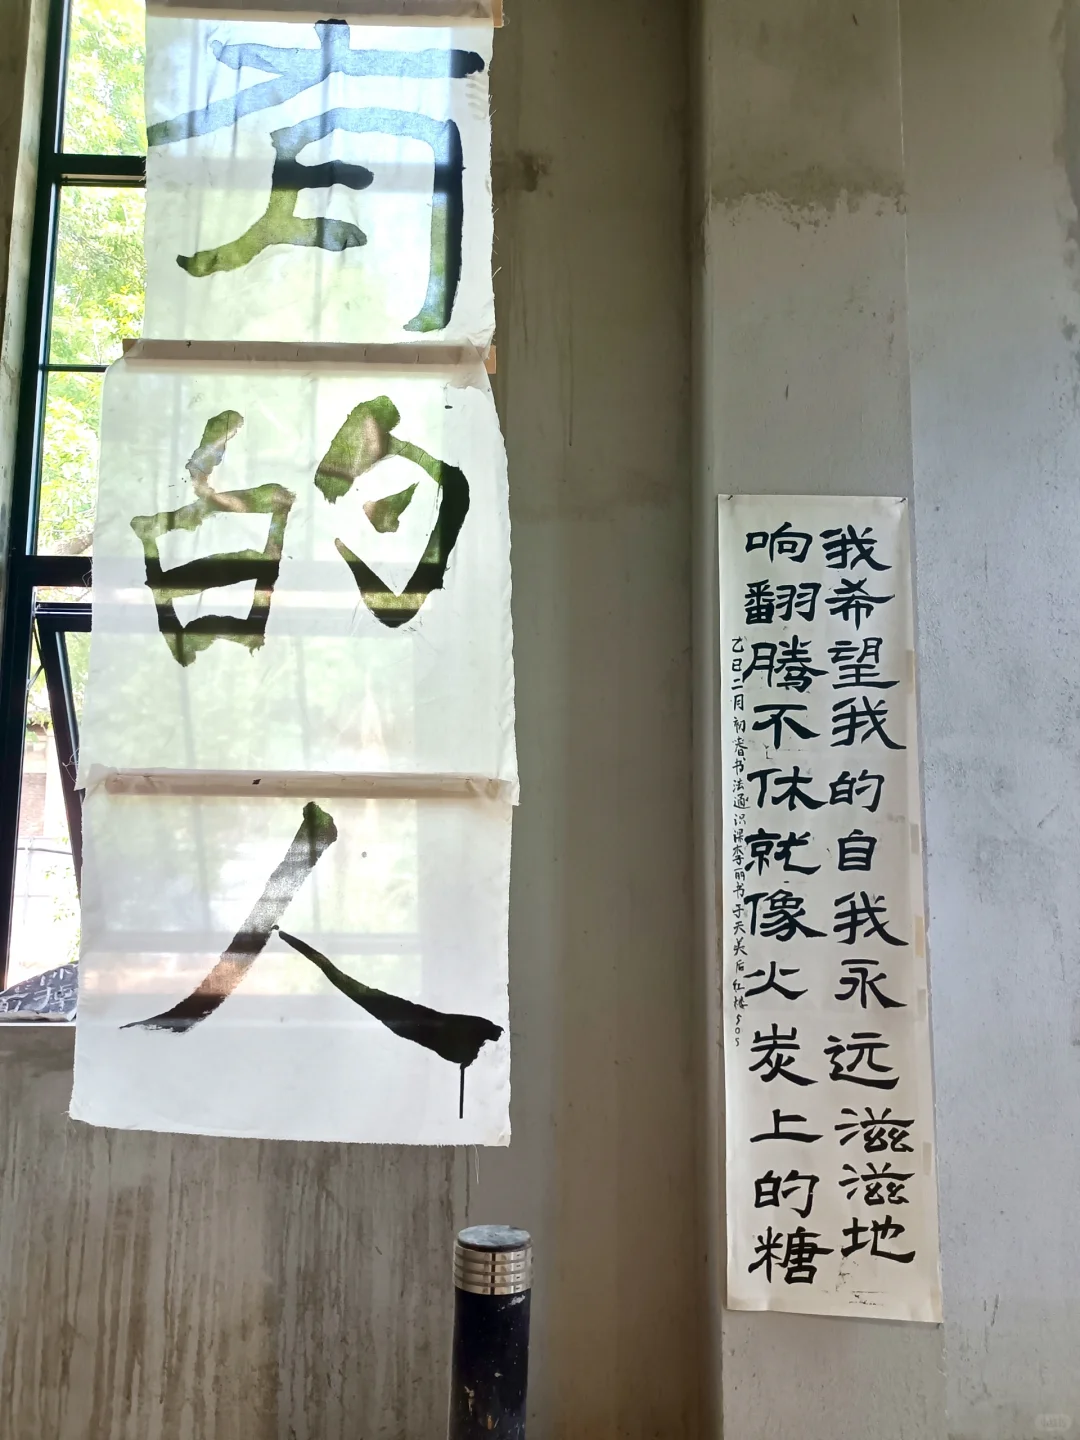 有的人
我希望我的自我永远滋滋地
响翻腾不休就像火炭上的糖
乙巳二月初春书法通识课李丽书于天美后红楼505